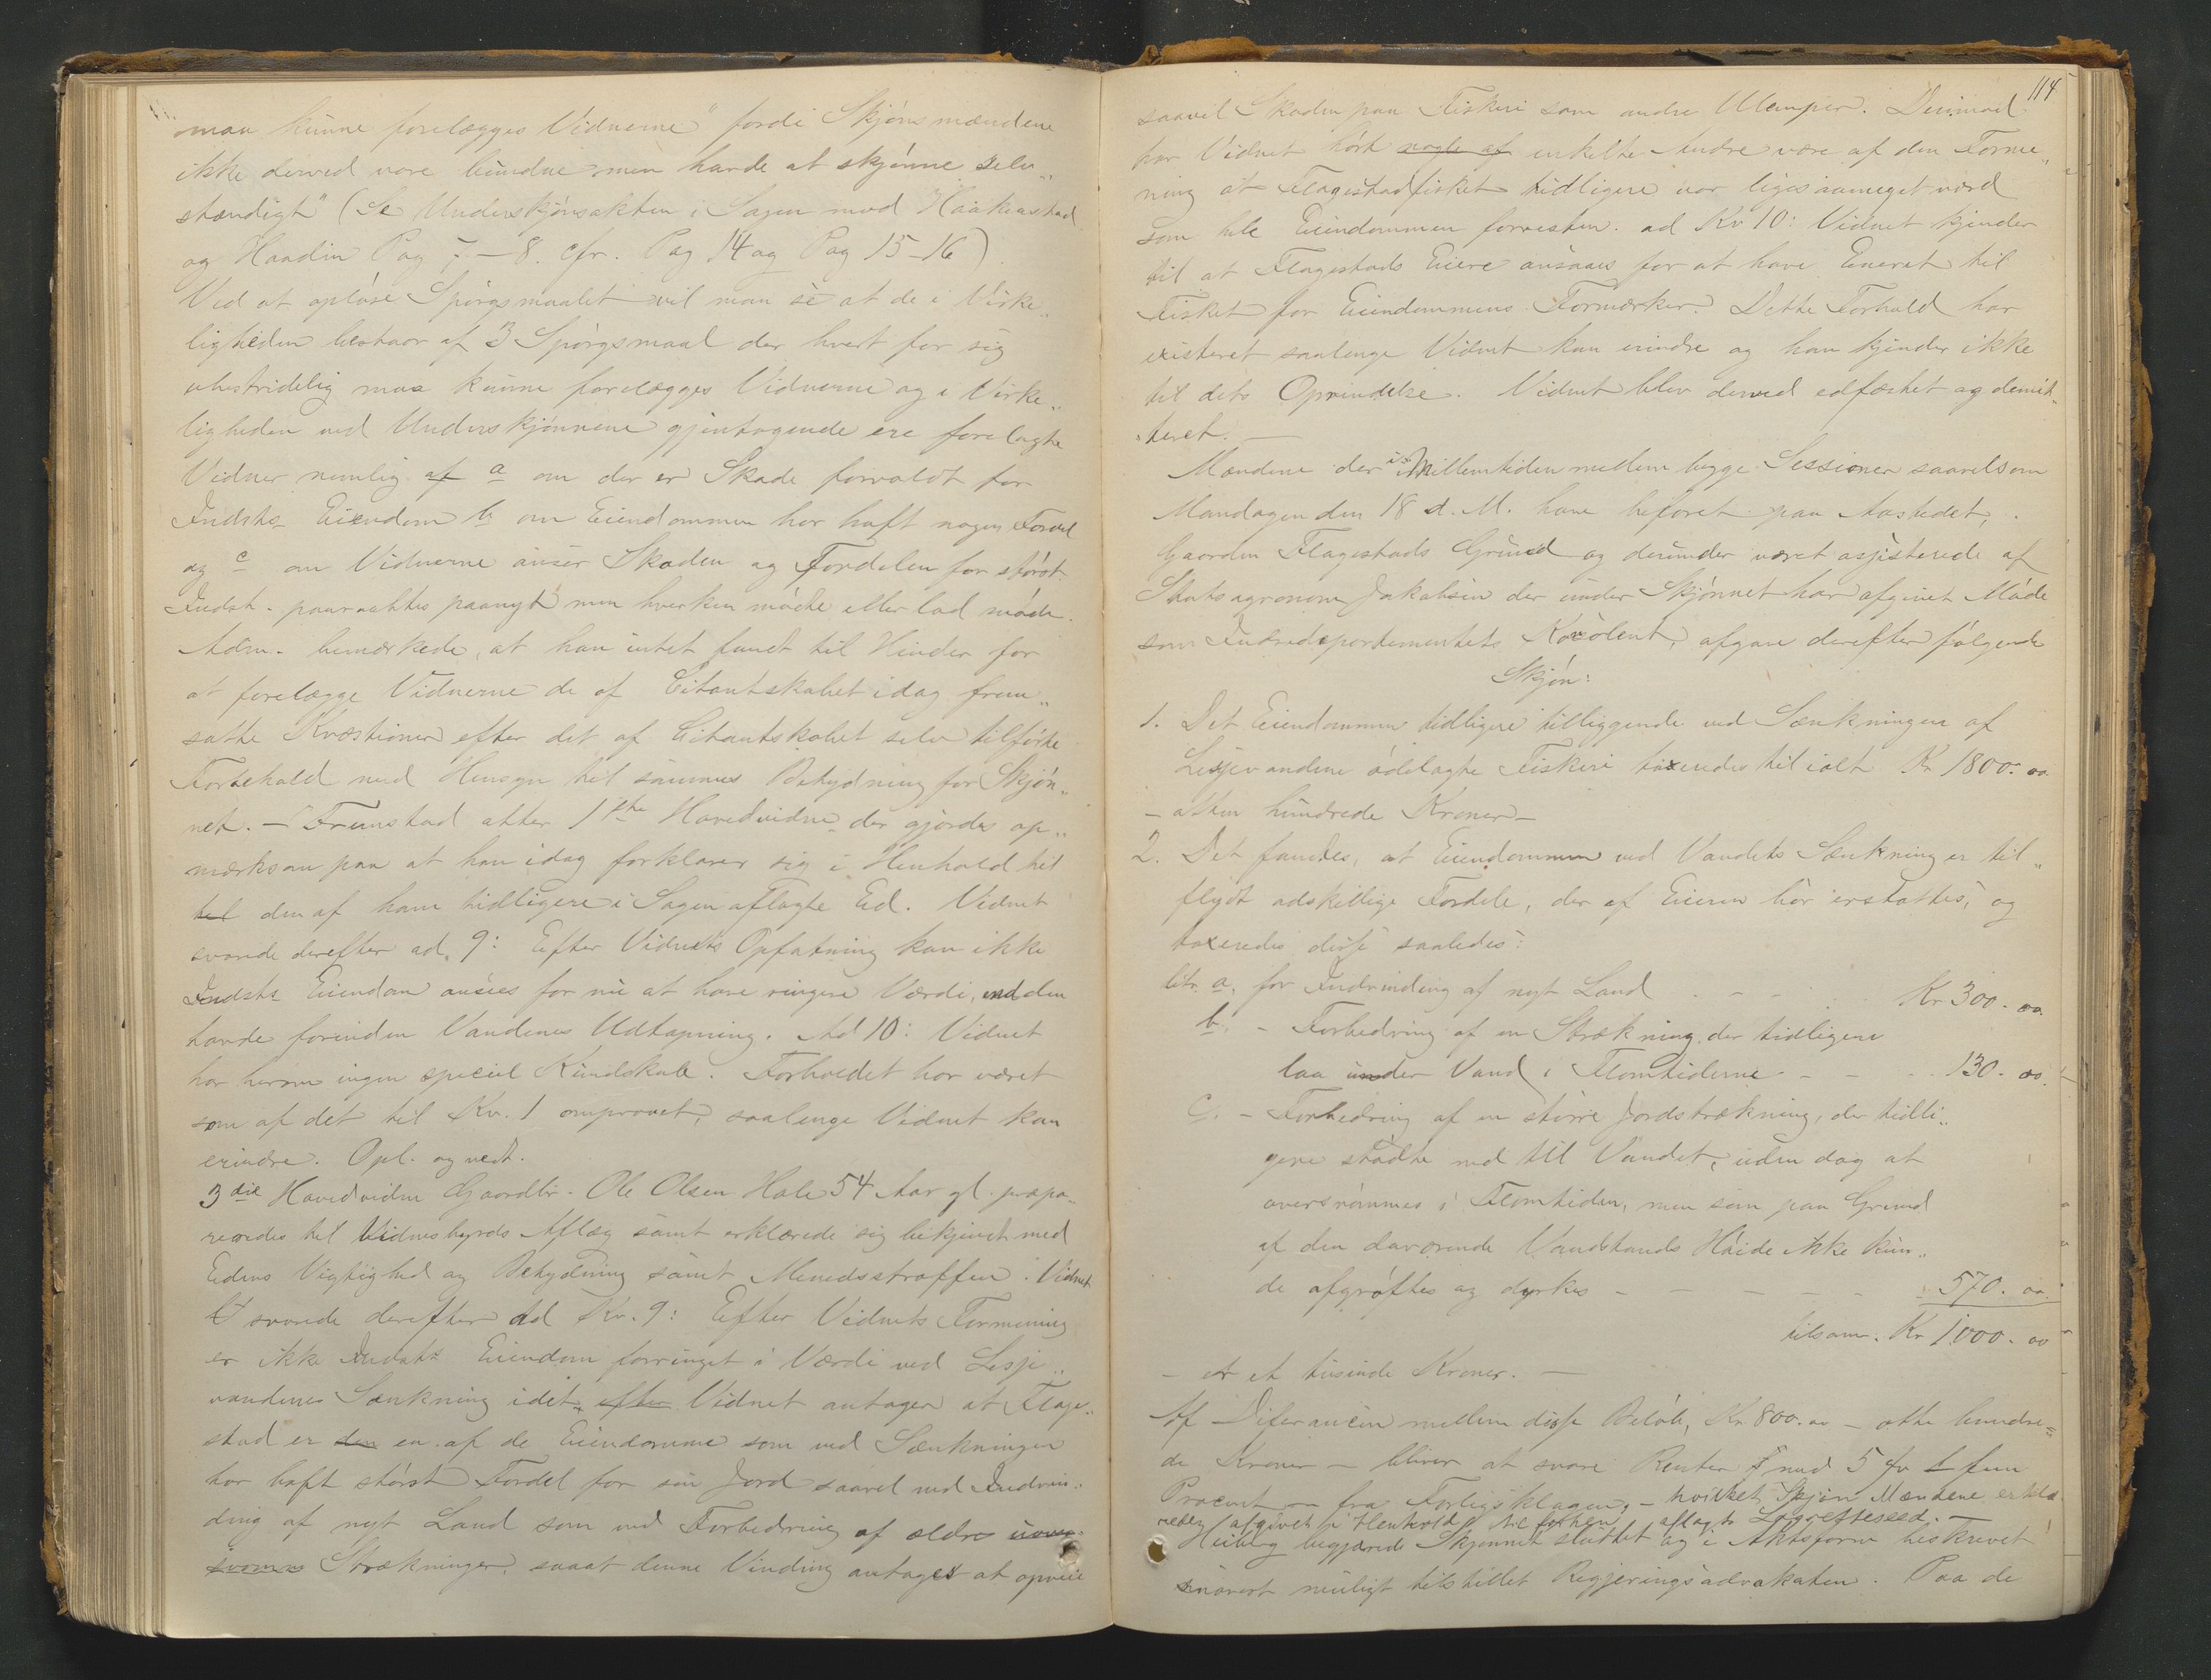 maa kunne forelægges Vidnerne" fordi Skjønsmændene
ikke derved vare bundne men havde at skjønne selv„
stændigt" (Se Underskjønsakten i Sagen mod Haakenstad
og Haadin Pag 7-8. cfr. Pag 14 og Pag 15-16)
Ved at opløse Spørgsmaalet vil man se at de i Virke„
ligheden bestaar af 3 Spørgsmaal der hvert for sig
ubestridelig maa kunne forelægges Vidnerne og i Virke„
ligheden ved Underskjønnene gjentagende ere forelagte
Vidner nemlig af a om der er Skade forvoldt for
Indsts Eiendom b om Eiendommen har haft nogen Fordel
og c om Vidnerne anser Skaden og Fordelen for størst.
Indst. paaraabtes paanyt men hverken mødte eller lod møde.
Adm. bemærkede, at han intet fandt til Hinder for
at forelægge Vidnerne de af Citantskabet idag frem„
satte Kvæstioner efter det af Citantskabet selv tilførte
Forbehold med Hensyn til sammes Betydning for Skjøn„
net. – Fremstod atter 1ste Hovedvidne der gjordes op„
mærksom paa at han idag forklarer sig i Henhold til
til den af ham tidligere i Sagen aflagte Ed. Vidnet
svarede derefter ad. 9: Efter Vidnets Opfatning kan ikke
Indsts Eiendom ansees for nu at have ringere Værdi, end den
havde forinden Vandenes Udtapning. Ad 10: Vidnet
har herom ingen speciel Kundskab. Forholdet har været
som af det til Kv. 1 omprovet, saalenge Vidnet kan
erindre. Opl. og vedt.
3die Hovedvidne Gaardbr. Ole Olsen Hole 54 Aar gl. præpa„
reredes til Vidnesbyrds Aflæg samt erklærede sig bekjendt med
Edens Vigtighed og Betydning samt Menedsstraffen. Vidnet
svarede derefter ad Kv. 9: Efter Vidnets Formening
er ikke Indsts Eiendom forringet i Værdi ved Lesje„
vandenes Sænkning idet efter Vidnet antager at Flage„
stad er den en af de Eiendomme som ved Sænkningen
har haft størst Fordel for sin Jord saavel ved Indvin„
ding af nyt Land som ved Forbedring af ældre
Strækninger, saaat denne Vinding antages at opveie
114
saavel Skaden paa Fiskeri som andre Ulemper. Derimod
har Vidnet hørt nogle af enkelte Andre være af den Forme„
ning at Flagestadfisket tidligere var ligesaameget værd
som hele Eiendommen forresten. ad Kv 10: Vidnet kjender
til at Flagestads Eiere ansaaes for at have Eneret til
Fisket for Eiendommens Formærker. Dette Forhold har
existeret saalenge Vidnet kan erindre og han kjender ikke
til dets Oprindelse. Vidnet blev derved edfæstet og demit„
teret. –
Mændene der i Mellemtiden mellem begge Sessioner saavelsom
Mandagen den 18 d. M. have befaret paa Aastedet,
Gaarden Flagestads Grund og derunder været assisterede af
Statsagronom Jakobsen der under Skjønnet har afgivet Møde
som Indredepartementets Konsulent, afgave derefter følgende
Skjøn:
1. Det Eiendommen tidligere tilliggende ved Sænkningen af
Lesjevandene ødelagte Fiskeri taxeredes til ialt Kr 1800. 00.
– atten hundrede Kroner –
2. Det fandtes, at Eiendommen ved Vandets Sænkning er til„
flydt adskillige Fordele, der af Eieren bør erstattes, og
taxeredes disse saaledes:
litr. a. for Indvinding af nyt Land – – Kr 300. 00.
b. – Forbedring af en Strækning, der tidligere
laa under Vand i Flomtiderne – – 130. 00.
c. – Forbedring af en større Jordstrækning, der tidli„
gere stødte ned til Vandet, uden dog at
oversvømmes i Flomtiden, men som paa Grund
af den daværende Vandstands Høide ikke kun„
de afgrøftes og dyrkes – – – – – 570. 00.
tilsam. Kr 1000. 00
– et tusinde Kroner. –
Af Diferancen mellem disse Beløb, Kr 800. 00 – otte hundre„
de Kroner – bliver at svare Renter med 5 fem
Procent – fra Forligsklagen, – hvilket Skjøn Mændene erklæ„
redes afgivet i Henhold til forhen aflagt Lagrettesed. –
Heiberg begjærede Skjønnet sluttet og i Aktsform beskrevet
snarest muligt tilstillet Regjeringsadvokaten. Paa de